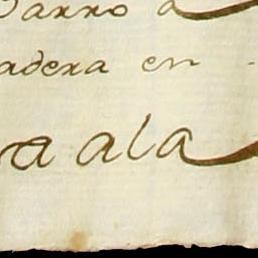 Barro a
adera en -
a a la